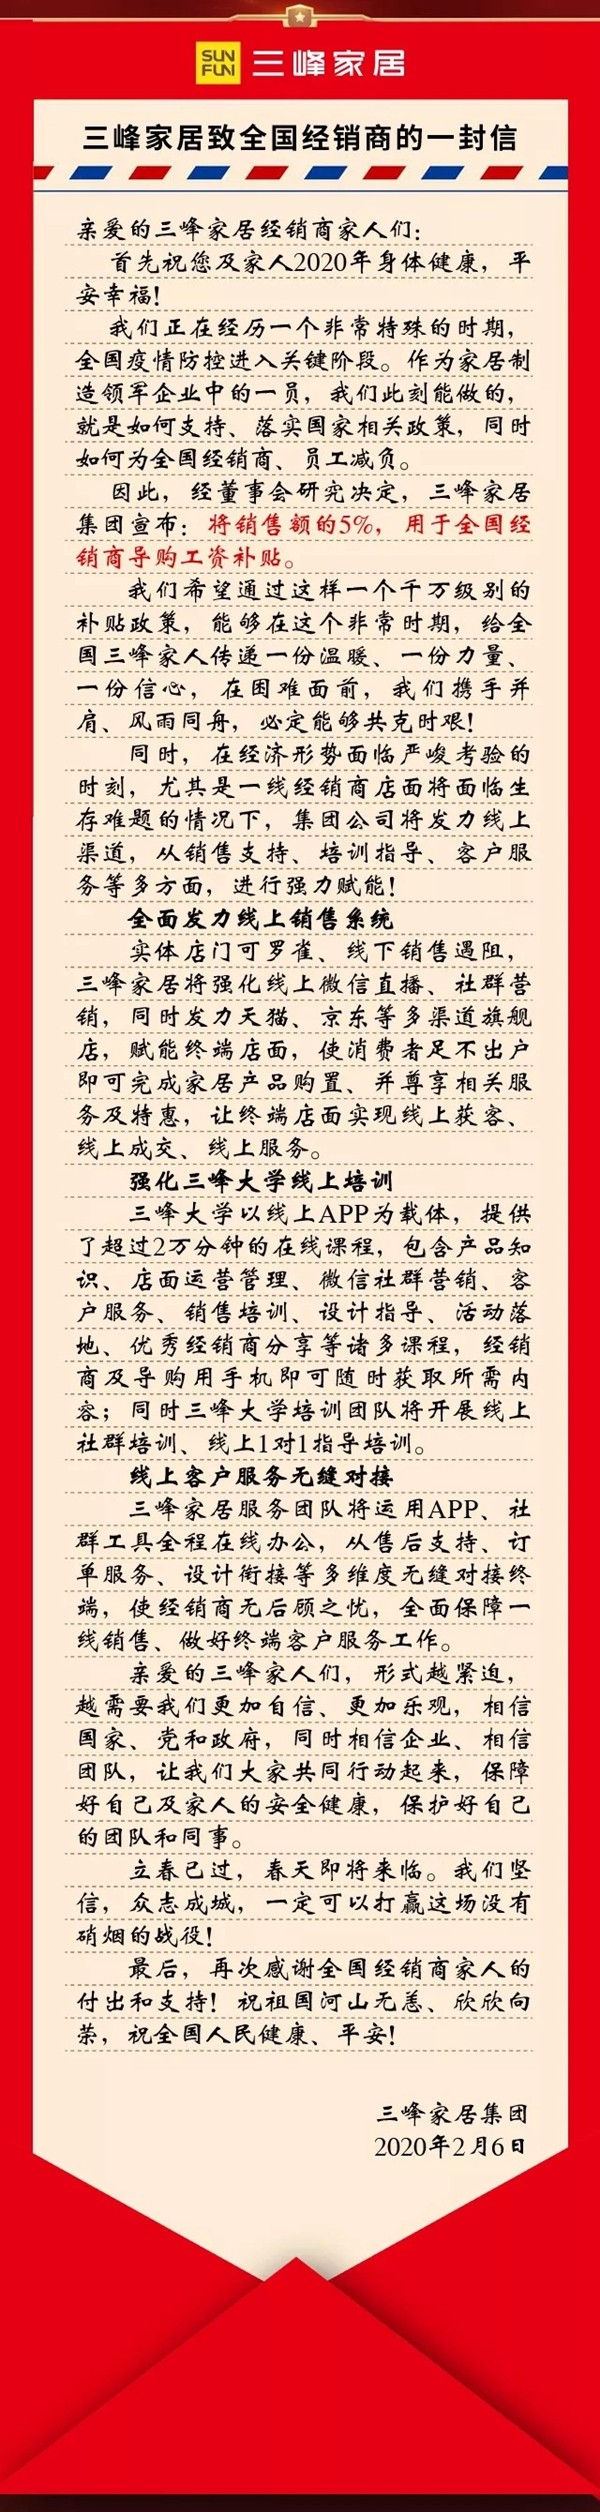 SUN
FUN
三峰家居
三峰家居致全国经销商的一封信
亲爱的三峰家居经销商家人们：
首先祝您及家人2020年身体健康，平
安幸福！
我们正在经历一个非常特殊的时期，
全国疫情防控进入关键阶段。作为家居制
造领军企业中的一员，我们此刻能做的，
就是如何支持、落实国家相关政策，同时
如何为全国经销商、员工减负。
因此，经董事会研究决定，三峰家居
集团宣布：将销售额的5%，用于全国经
销商导购工资补贴。
我们希望通过这样一个千万级别的
补贴政策，能够在这个非常时期，给全
国三峰家人传递一份温暖、一份力量、
一份信心，在困难面前，我们携手并
肩、风雨同舟，必定能够共克时艰！
同时，在经济形势面临严峻考验的
时刻，尤其是一线经销商店面将面临生
存难题的情况下，集团公司将发力线上
渠道，从销售支持、培训指导、客户服
务等多方面，进行强力赋能！
全面发力线上销售系统
实体店门可罗雀、线下销售遇阻，
三峰家居将强化线上微信直播、社群营
销，同时发力天猫、京东等多渠道旗舰
店，赋能终端店面，使消费者足不出户
即可完成家居产品购置、并尊享相关服
务及特惠，让终端店面实现线上获客、
线上成交、线上服务。
强化三峰大学线上培训
三峰大学以线上APP为载体，提供
了超过2万分钟的在线课程，包含产品知
识、店面运营管理、微信社群营销、客
户服务、销售培训、设计指导、活动落
地、优秀经销商分享等诸多课程，经销
商及导购用手机即可随时获取所需内
容；同时三峰大学培训团队将开展线上
社群培训、线上1对1指导培训。
线上客户服务无缝对接
三峰家居服务团队将运用APP、社
群工具全程在线办公，从售后支持、订
单服务、设计衔接等多维度无缝对接终
端，使经销商无后顾之忧，全面保障一
线销售、做好终端客户服务工作。
亲爱的三峰家人们，形式越紧迫，
越需要我们更加自信、更加乐观，相信
国家、党和政府，同时相信企业、相信
团队，让我们大家共同行动起来，保障
好自己及家人的安全健康，保护好自己
的团队和同事。
立春已过，春天即将来临。我们坚
信，众志成城，一定可以打赢这场没有
硝烟的战役！
最后，再次感谢全国经销商家人的
付出和支持！祝祖国河山无恙、欣欣向
荣，祝全国人民健康、平安！
三峰家居集团
2020年2月6日